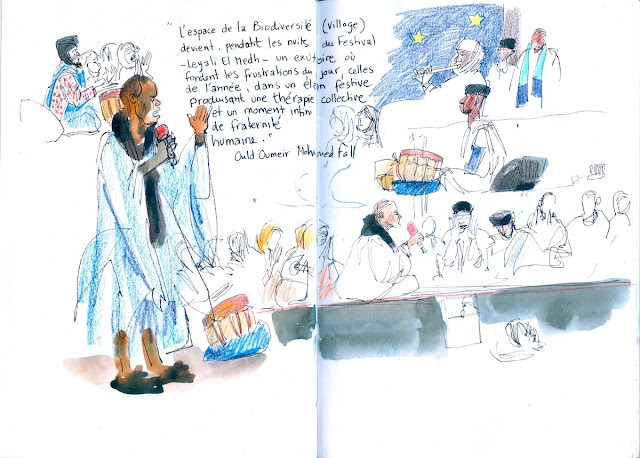 "L'espace de la Biodiversité (village)
devient, pendant les nuits du Festival
-Leyali El Medh- un exutoire où
fondent les frustrations du jour, celles
de l'année, dans un élan festive
produisant une thérapie collective
et un moment infini
de fraternité
humaine."
Ould Oumeir Mohamed Fall